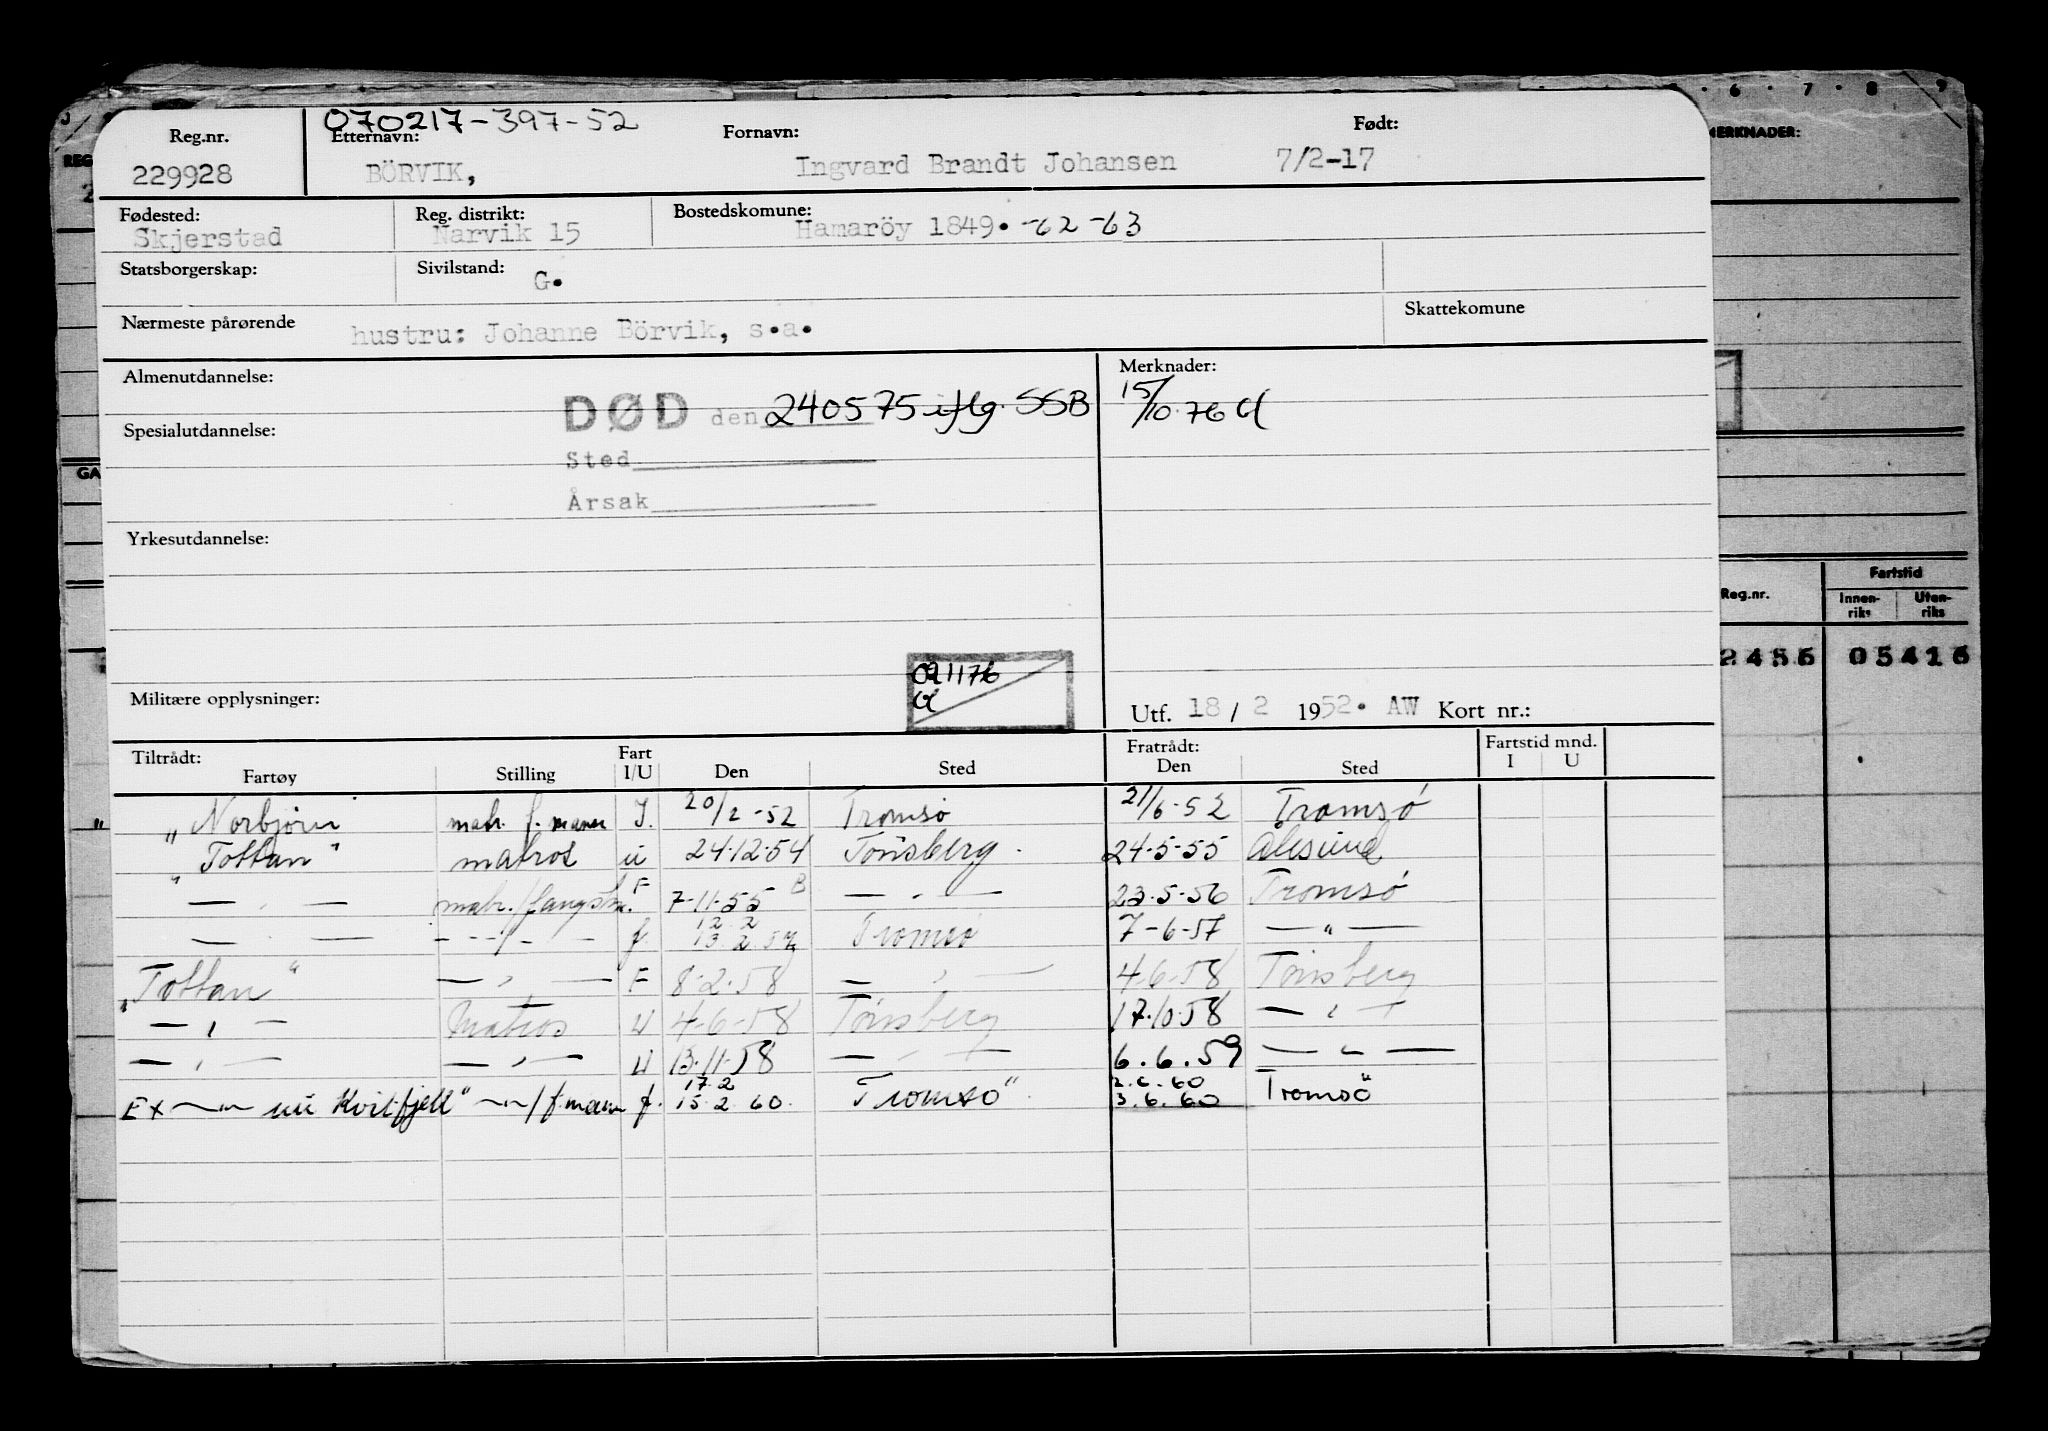 070217-397-52
Reg.nr. Etternavn: Fornavn: Født: MERKNADER:
229928 BÖRVIK, Ingvard Brandt Johansen 7/2-17
Fødested: Reg. distrikt: Bostedskomune:
Skjerstad Narvik 15 Hamaröy 1849. -62 -63
Statsborgerskap: Sivilstand: G.
Nærmeste pårørende hustru: Johanne Börvik, s.a. Skattekomune
Almenutdannelse: Merknader:
DØD den 240575 iflg. SSB 15/10.76 Cl
Spesialutdannelse:
Sted
Årsak
Yrkesutdannelse:
091176
Cl
Militære opplysninger: Utf. 18 / 2 1952. AW Kort nr.:
Tiltrådt: Fart Fratrådt: Fartstid mnd.
Fartøy Stilling I/U Den Sted Den Sted I U
"Norbjørn" matr. f. mann I. 20/2-52 Tromsø 21/6-52 Tromsø
"Tottan" matros u 24.12.54 Tønsberg. 24.5-55 Ålesund
— " — matr./fangstm. F 7-11-55 B — " — 23.5.56 Tromsø
12 2
— " — - - -/- - f 13 2 57 Tromsø 7-6-57 — " —
"Tottan" — " — F 8-2-58 — " — 4-6-58 Tønsberg
— " — Matros U 4-6-58 Tønsberg 17.10.58 — " —
— " — — " — U 13.11.58 — " — 6.6.59 — " —
17.2 2.6.60
Ex —"— nu Kvitfjell" —"—/f.mann f. 15.2 60. Tromsø" 3.6.60 Tromsø"
Reg.nr. Fartstid
Innen-riks Uten-riks
2486 05416